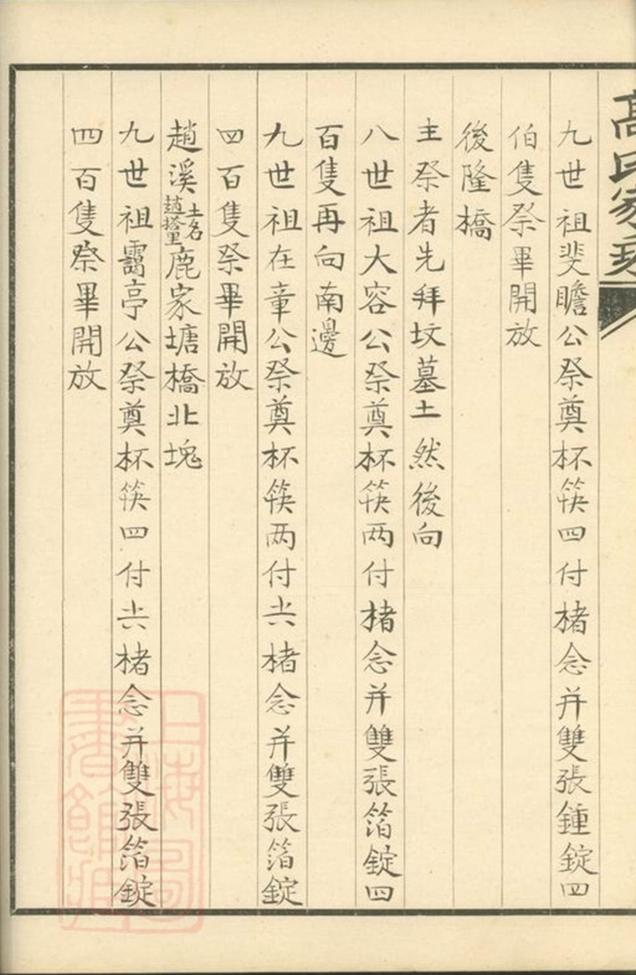 高氏家
九世祖斐瞻公祭奠杯筷四付楮念并雙張鍾錠四
伯隻祭畢開放
後隆橋
主祭者先拜坟墓土然後向
八世祖大容公祭奠杯筷两付楮念并雙張箔錠四
百隻再向南邊
九世祖在章公祭奠杯筷两付𠀉楮念并雙張箔錠
四百隻祭畢開放
趙溪土名趙墪鹿家塘橋北塊
九世祖靄亭公祭奠杯筷四付𠀉楮念并雙張箔錠
四百隻祭畢開放
上海圖書館藏